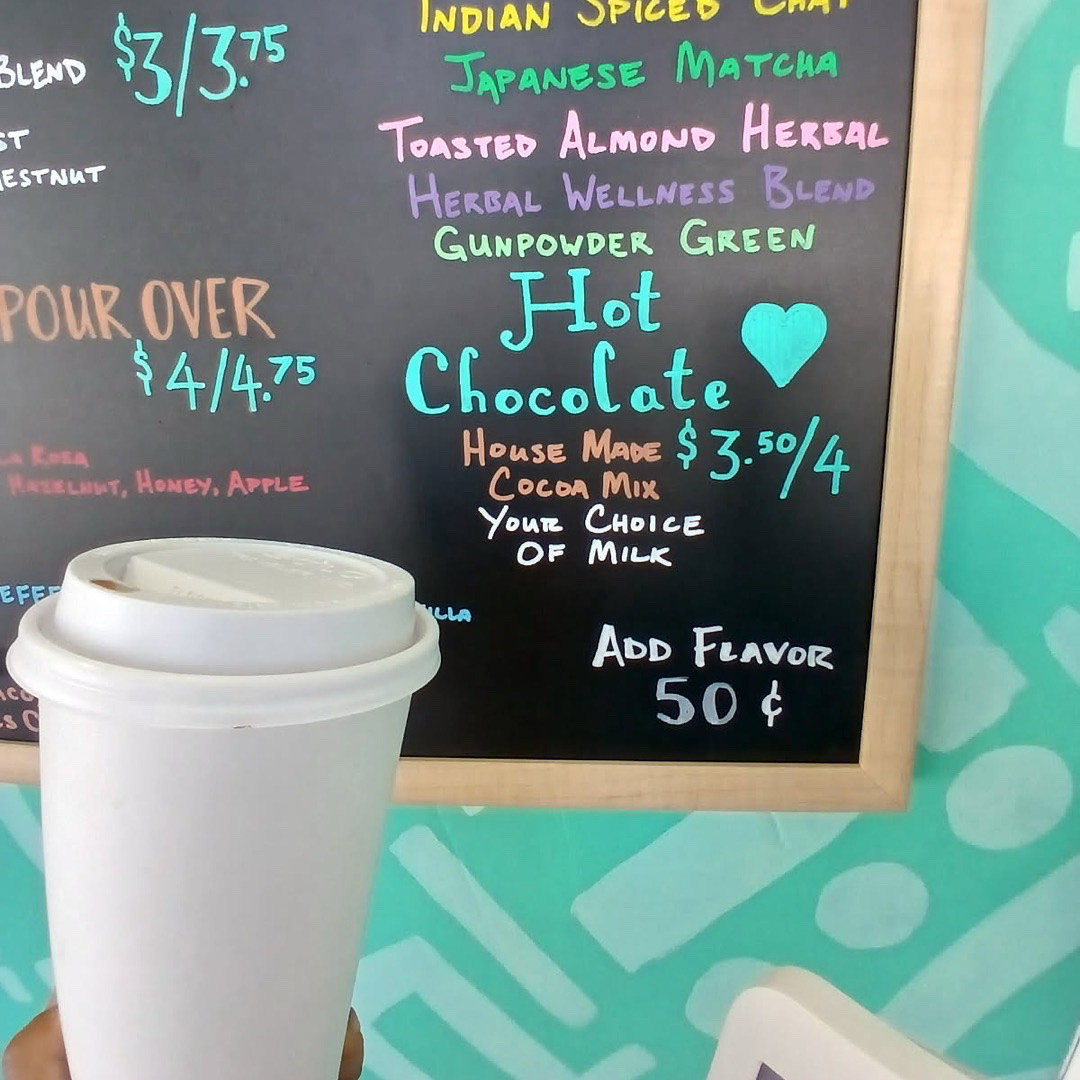 BLEND $3/3.75
POUR OVER
$4/4.75
HAZELNUT, HONEY, APPLE
INDIAN SPICED CHAI
JAPANESE MATCHA
TOASTED ALMOND HERBAL
HERBAL WELLNESS BLEND
GUNPOWDER GREEN
Hot
Chocolate
HOUSE MADE $3.50/4
COCOA MIX
YOUR CHOICE
OF MILK
ADD FLAVOR
50¢